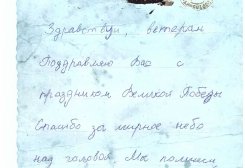 Здравствуй, ветеран
Поздравляю Вас с
праздником Великой Победы
Спасибо за мирное небо
над головой Мы помним